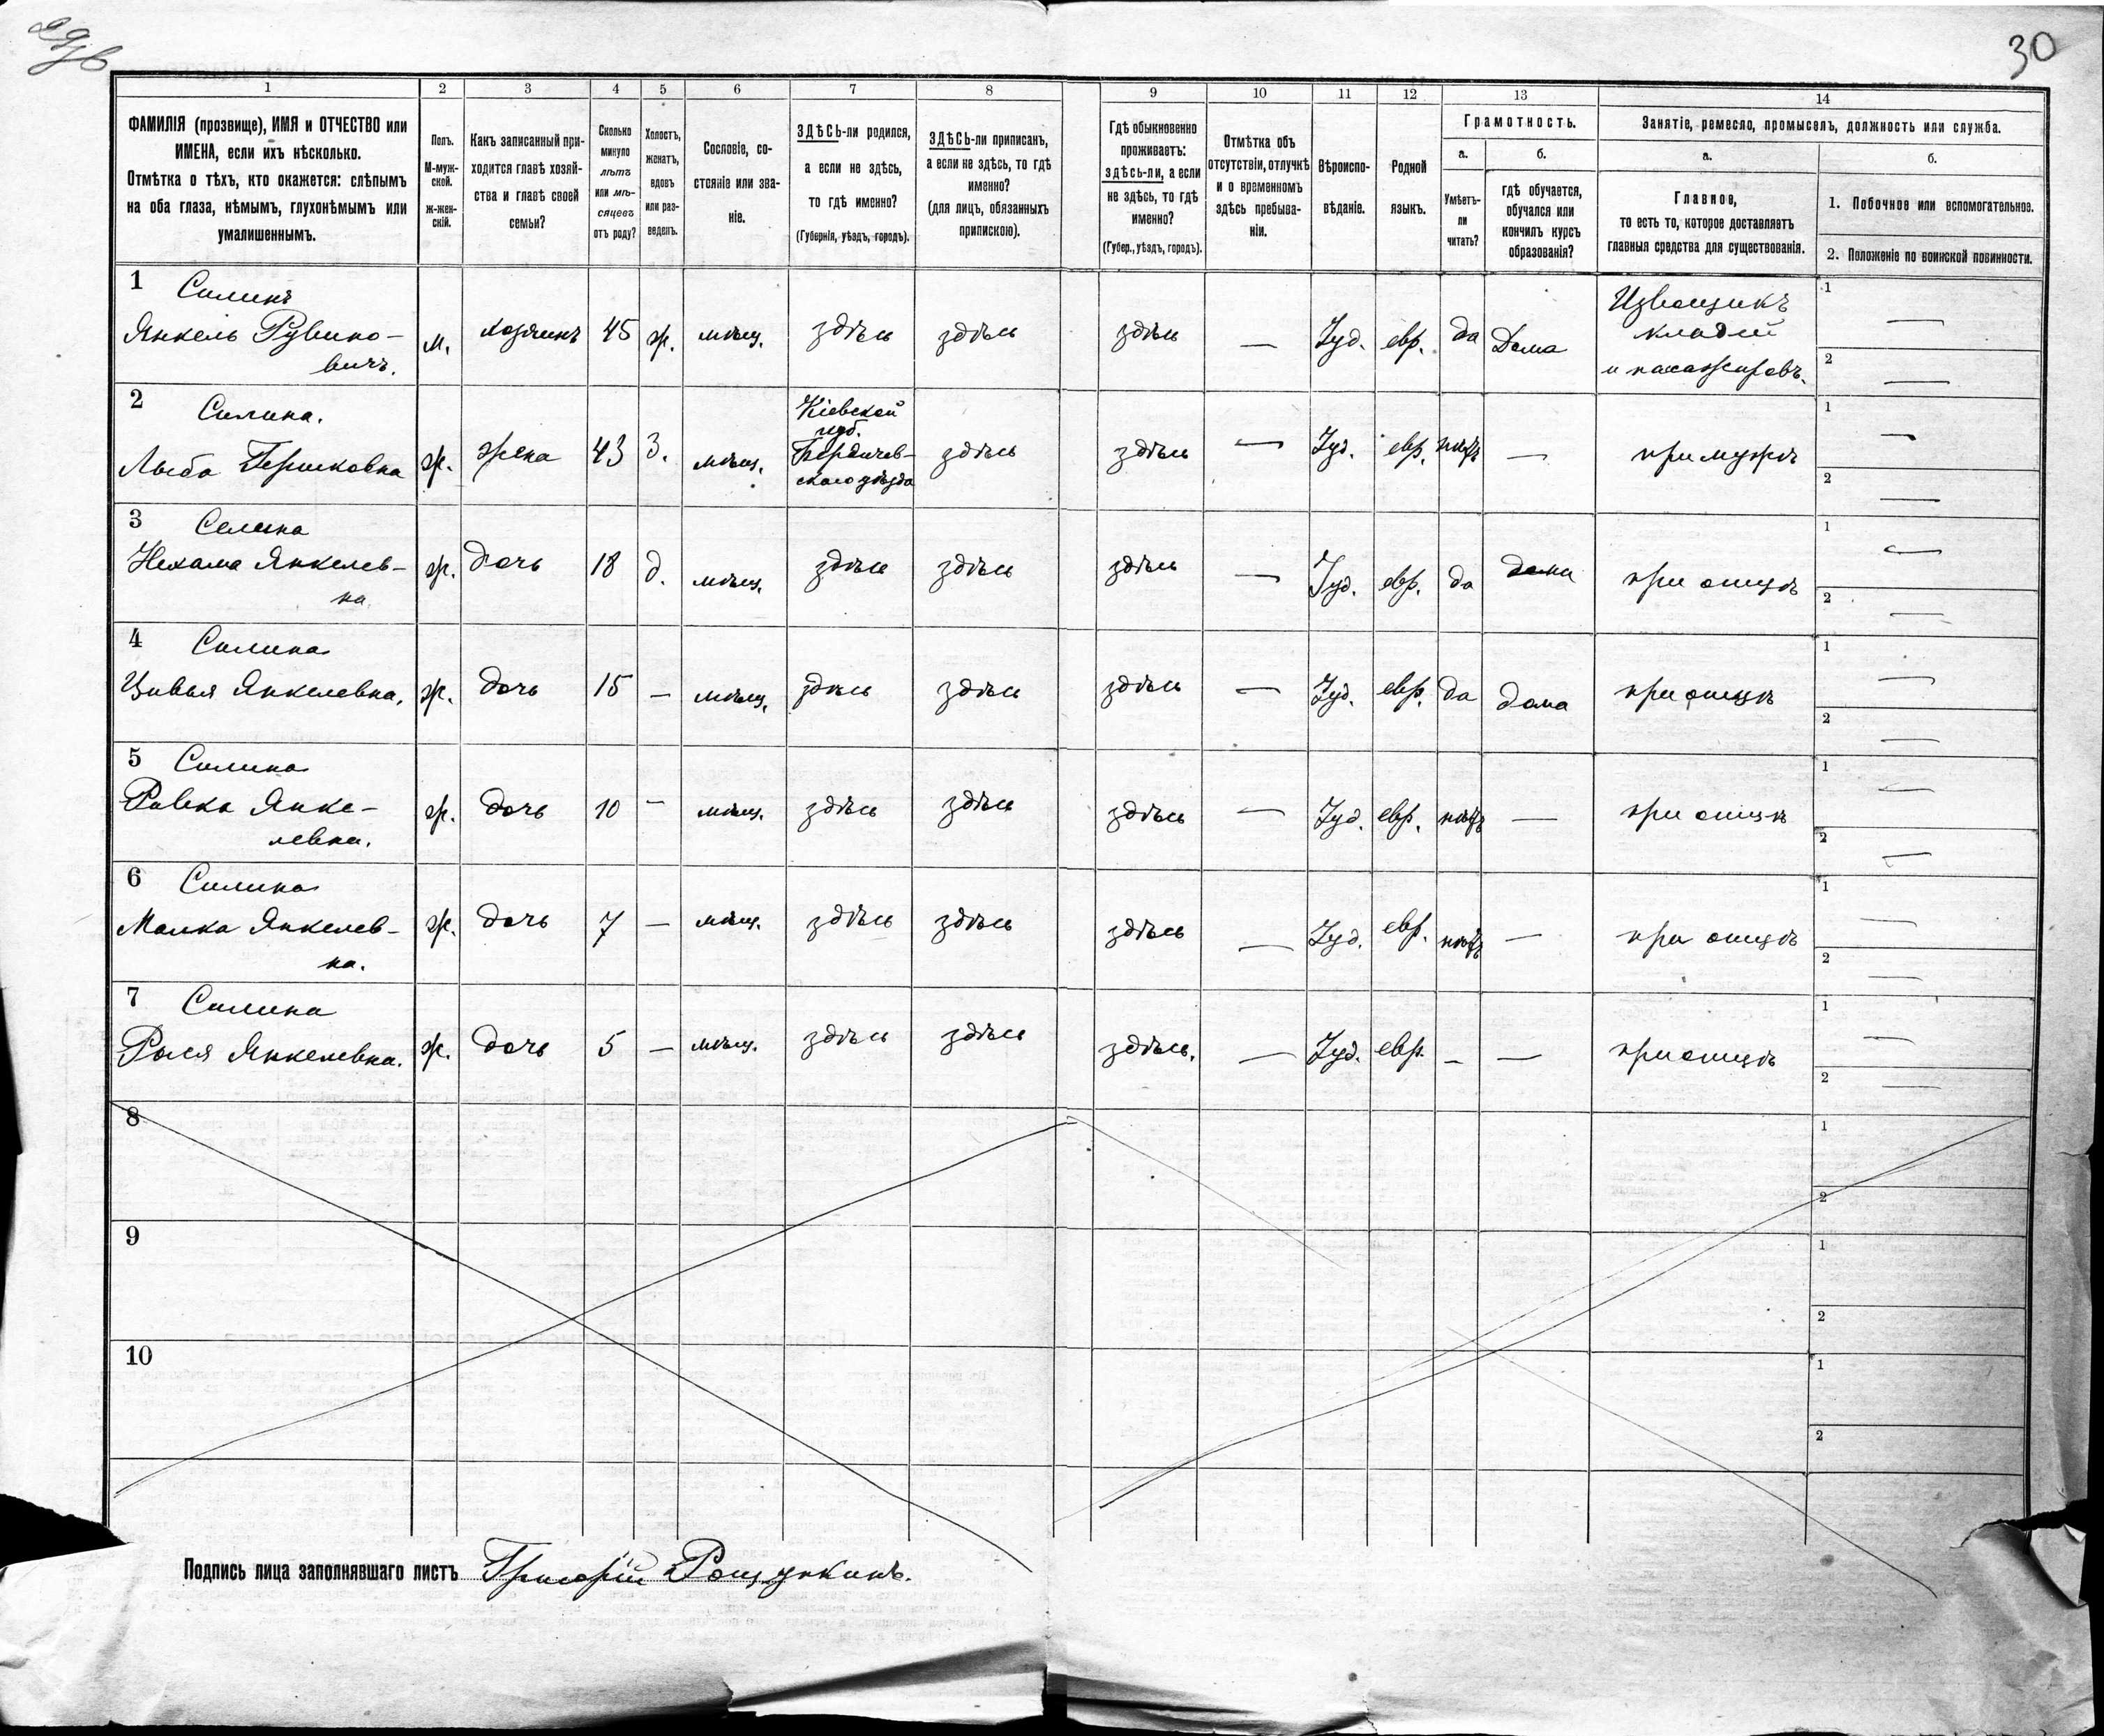 29об
30
1 2 3 4 5 6 7 8 9 10 11 12 13 14
ФАМИЛІЯ (прозвище), ИМЯ и ОТЧЕСТВО или
ИМЕНА, если ихъ нѣсколько.
Отмѣтка о тѣхъ, кто окажется: слѣпымъ
на оба глаза, нѣмымъ, глухонѣмымъ или
умалишеннымъ.
Полъ.
М-муж-
ской.
ж-жен-
скій.
Какъ записанный при-
ходится главѣ хозяй-
ства и главѣ своей
семьи?
Сколько
минуло
лѣтъ
или мѣ-
сяцевъ
отъ роду?
Холостъ,
женатъ,
вдовъ
или раз-
веденъ.
Сословіе, со-
стояніе или зва-
ніе.
ЗДѢСЬ-ли родился,
а если не здѣсь,
то гдѣ именно?
(Губернія, уѣздъ, городъ).
ЗДѢСЬ-ли приписан,
а если не здѣсь, то гдѣ
именно?
(для лицъ, обязанныхъ
припискою).
Гдѣ обыкновенно
проживаетъ:
здѣсь-ли, а если
не здѣсь, то гдѣ
именно?
(Губер., уѣздъ, городъ).
Отмѣтка объ
отсутствіи, отлучкѣ
и о временномъ
здѣсь пребыва-
ніи.
Вѣроиспо-
вѣданіе.
Родной
языкъ.
Грамотность.
а.
Умѣетъ-
ли
читать?
б.
гдѣ обучается,
обучался или
кончилъ курсъ
образованія?
Занятіе, ремесло, промыселъ, должность или служба.
а.
Главное,
то есть то, которое доставляетъ
главныя средства для существованія.
б.
1. Побочное или вспомогательное.
2. Положеніе по воинской повинности.
1 Силинъ
Янкель Рувино-
вичъ. м. хозяинъ 45 ж. мѣщ. здѣсь здѣсь здѣсь — Іуд. евр. да Дома
Извощикъ
кладей
и пассажировъ.
1 —
2 —
2 Силина.
Лыба Гершковна ж. жена 43 З. мѣщ.
Кіевской
губ.
Бердичев-
скаго уѣзда
здѣсь здѣсь — Іуд. евр. нѣтъ — при мужѣ
1 —
2 —
3 Силина
Нехама Янкелев-
на ж. дочь 18 д. мѣщ. здѣсь здѣсь здѣсь — Іуд. евр. да дома при отцѣ
1 —
2 —
4 Силина
Цивья Янкелевна, ж. дочь 15 — мѣщ. здѣсь здѣсь здѣсь — Іуд. евр. да дома при отцѣ
1 —
2 —
5 Силина
Ривка Янке-
левна. ж. дочь 10 — мѣщ. здѣсь здѣсь здѣсь — Іуд. евр. нѣтъ — при отцѣ
1 —
2 —
6 Силина
Малка Янкелев-
на. ж. дочь 7 — мѣщ. здѣсь здѣсь здѣсь — Іуд. евр. нѣтъ — при отцѣ
1 —
2 —
7 Силина
Рыся Янкелевна. ж. дочь 5 — мѣщ. здѣсь здѣсь здѣсь. — Іуд. евр. — — при отцѣ
1 —
2 —
8
1
2
9
1
2
10
1
2
Подпись лица заполнявшаго листъ Григорій